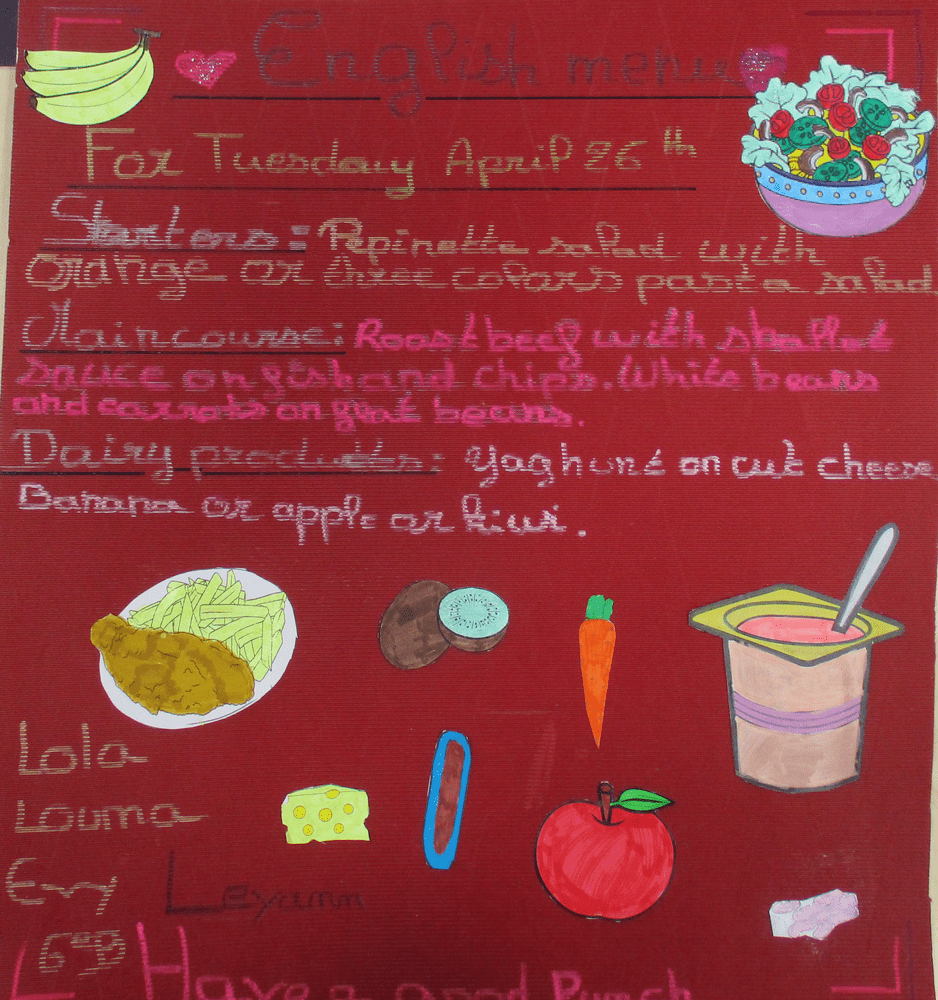 English menu
For Tuesday April 26th
Starters: Pepinette salad with
orange or three colors pasta salad
Main course: Roast beef with shallot
sauce or fish and chips. White beans
and carrots or flat beans.
Dairy products: Yaghurt or cut cheese
Banana or apple or kiwi.
Lola
Louma
Evy Leyann
6eD
Have a good lunch